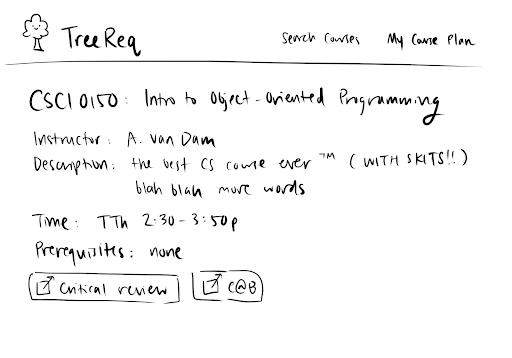 TreeReq
Search Courses
My Course Plan
CSCI 0150: Intro to Object-Oriented Programming
Instructor: A. van Dam
Description: the best CS course ever ™ (WITH SKITS!!)
blah blah more words
Time: TTh 2:30-3:50p
Prerequisites: none
Critical review
C@B